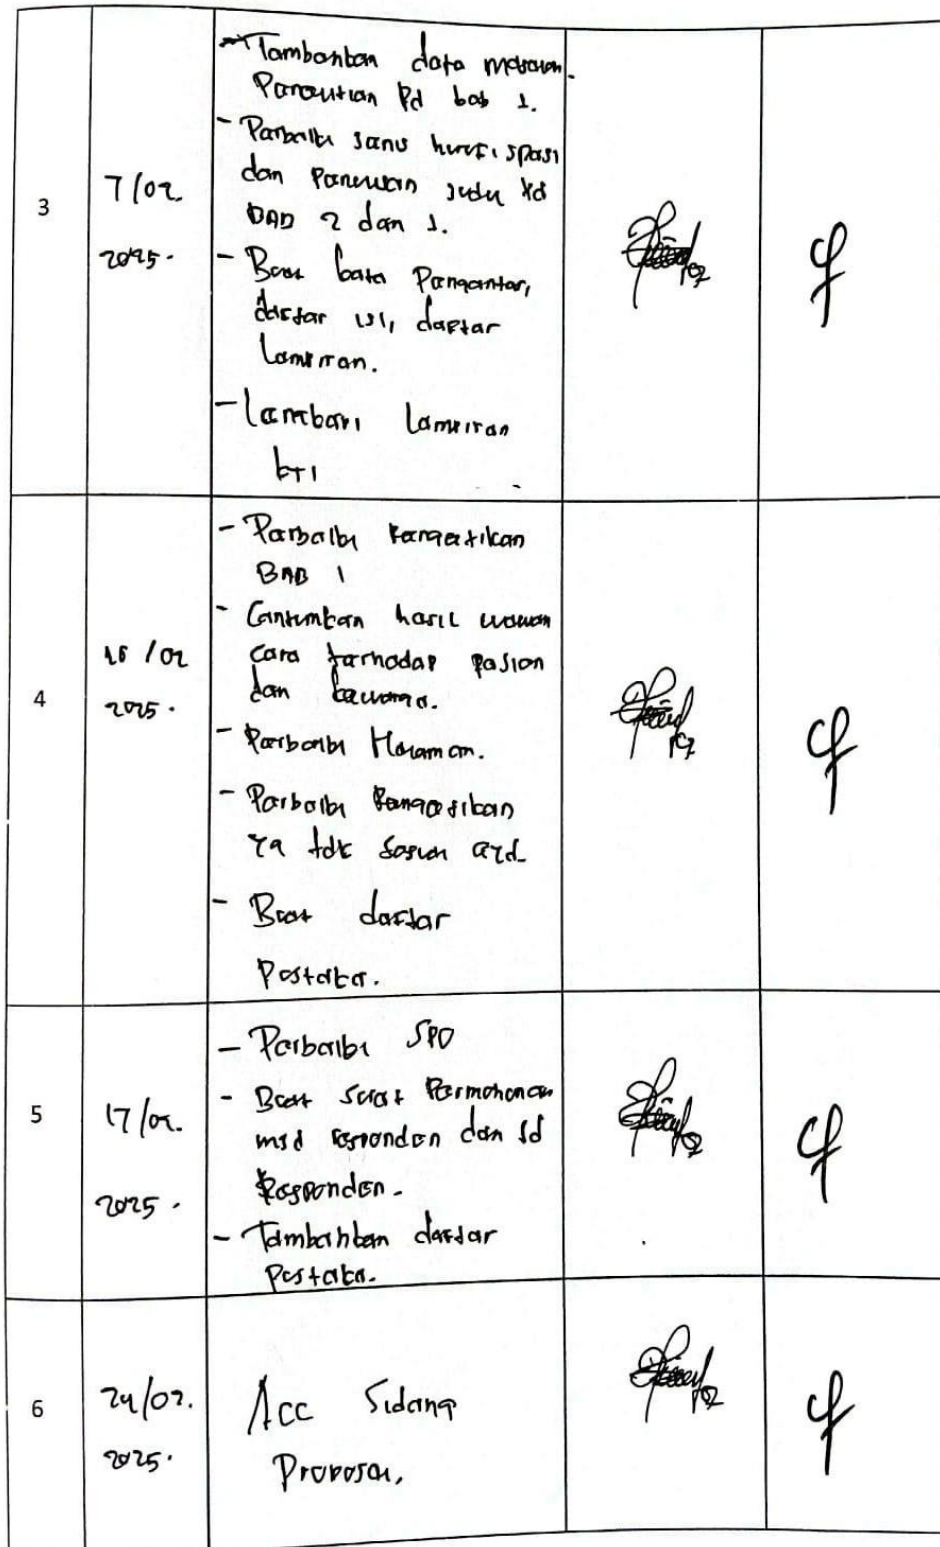 3
7/02
2025.
- Tambahkan data
Penelitian Pd bab 1.
- Perbaiki huruf, spasi
dan Penulisan judul Pd
BAB 2 dan 1.
- Buat kata Pengantar,
daftar isi, daftar
Lampiran.
- Lampiran
KTI
4
/02
2025.
- Perbaiki Pengetikan
BAB 1
- Cantumkan hasil wawan
cara terhadap pasien
dan keluarga.
- Perbaiki Halaman.
- Perbaiki Pengetikan
yg tdk sesuai eyd.
- Buat daftar
Pustaka.
5
17/02.
2025.
- Perbaiki SPO
- Buat surat Permohonan
responden dan
Responden.
- Tambahkan daftar
Pustaka.
6
24/02.
2025.
Acc Sidang
Proposal.